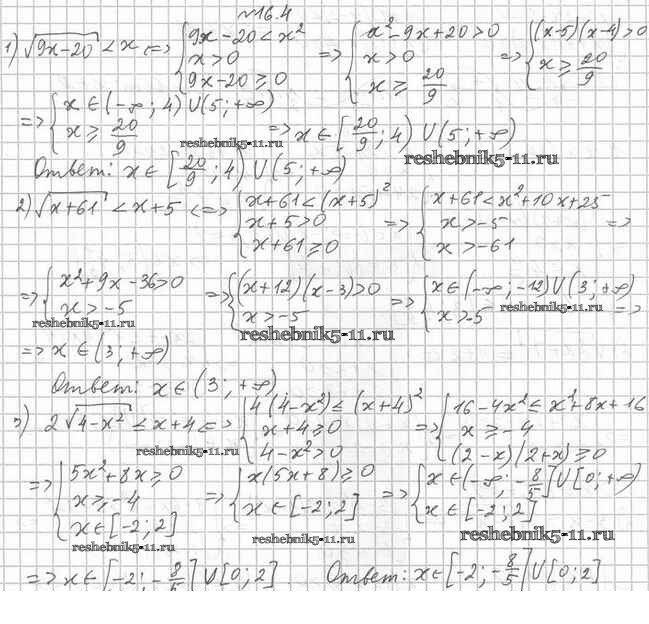 №16.4
1) √(9x-20) < x <=> { 9x-20 < x² ; x > 0 ; 9x-20 ≥ 0 => { x²-9x+20 > 0 ; x > 0 ; x ≥ 20/9 => { (x-5)(x-4) > 0 ; x ≥ 20/9
=> { x ∈ (-∞; 4) ∪ (5; +∞) ; x ≥ 20/9 => x ∈ [20/9; 4) ∪ (5; +∞)
reshebnik5-11.ru reshebnik5-11.ru
Ответ: x ∈ [20/9; 4) ∪ (5; +∞)
2) √(x+61) < x+5 <=> { x+61 < (x+5)² ; x+5 > 0 ; x+61 ≥ 0 => { x+61 < x²+10x+25 ; x > -5 ; x > -61 =>
=> { x²+9x-36 > 0 ; x > -5 => { (x+12)(x-3) > 0 ; x > -5 => { x ∈ (-∞; -12) ∪ (3; +∞) ; x > -5 =>
reshebnik5-11.ru reshebnik5-11.ru reshebnik5-11.ru
=> x ∈ (3; +∞)
Ответ: x ∈ (3; +∞)
3) 2√(4-x²) ≤ x+4 <=> { 4(4-x²) ≤ (x+4)² ; x+4 ≥ 0 ; 4-x² > 0 => { 16-4x² ≤ x²+8x+16 ; x ≥ -4 ; (2-x)(2+x) ≥ 0
reshebnik5-11.ru
=> { 5x²+8x ≥ 0 ; x ≥ -4 ; x ∈ [-2; 2] => { x(5x+8) ≥ 0 ; x ∈ [-2; 2] => { x ∈ (-∞; -8/5] ∪ [0; +∞) ; x ∈ [-2; 2]
reshebnik5-11.ru reshebnik5-11.ru reshebnik5-11.ru
=> x ∈ [-2; -8/5] ∪ [0; 2] Ответ: x ∈ [-2; -8/5] ∪ [0; 2]